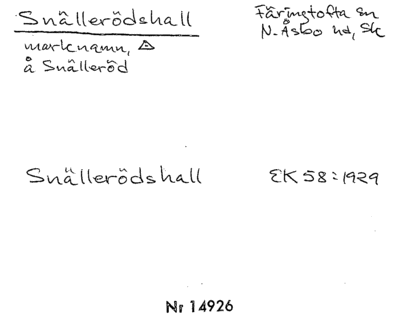 Snällerödshall
Färingtofta sn
N. Åsbo hd, Sk
marknamn,
å Snälleröd
Snällerödshall
EK 58:1929
Nr 14926